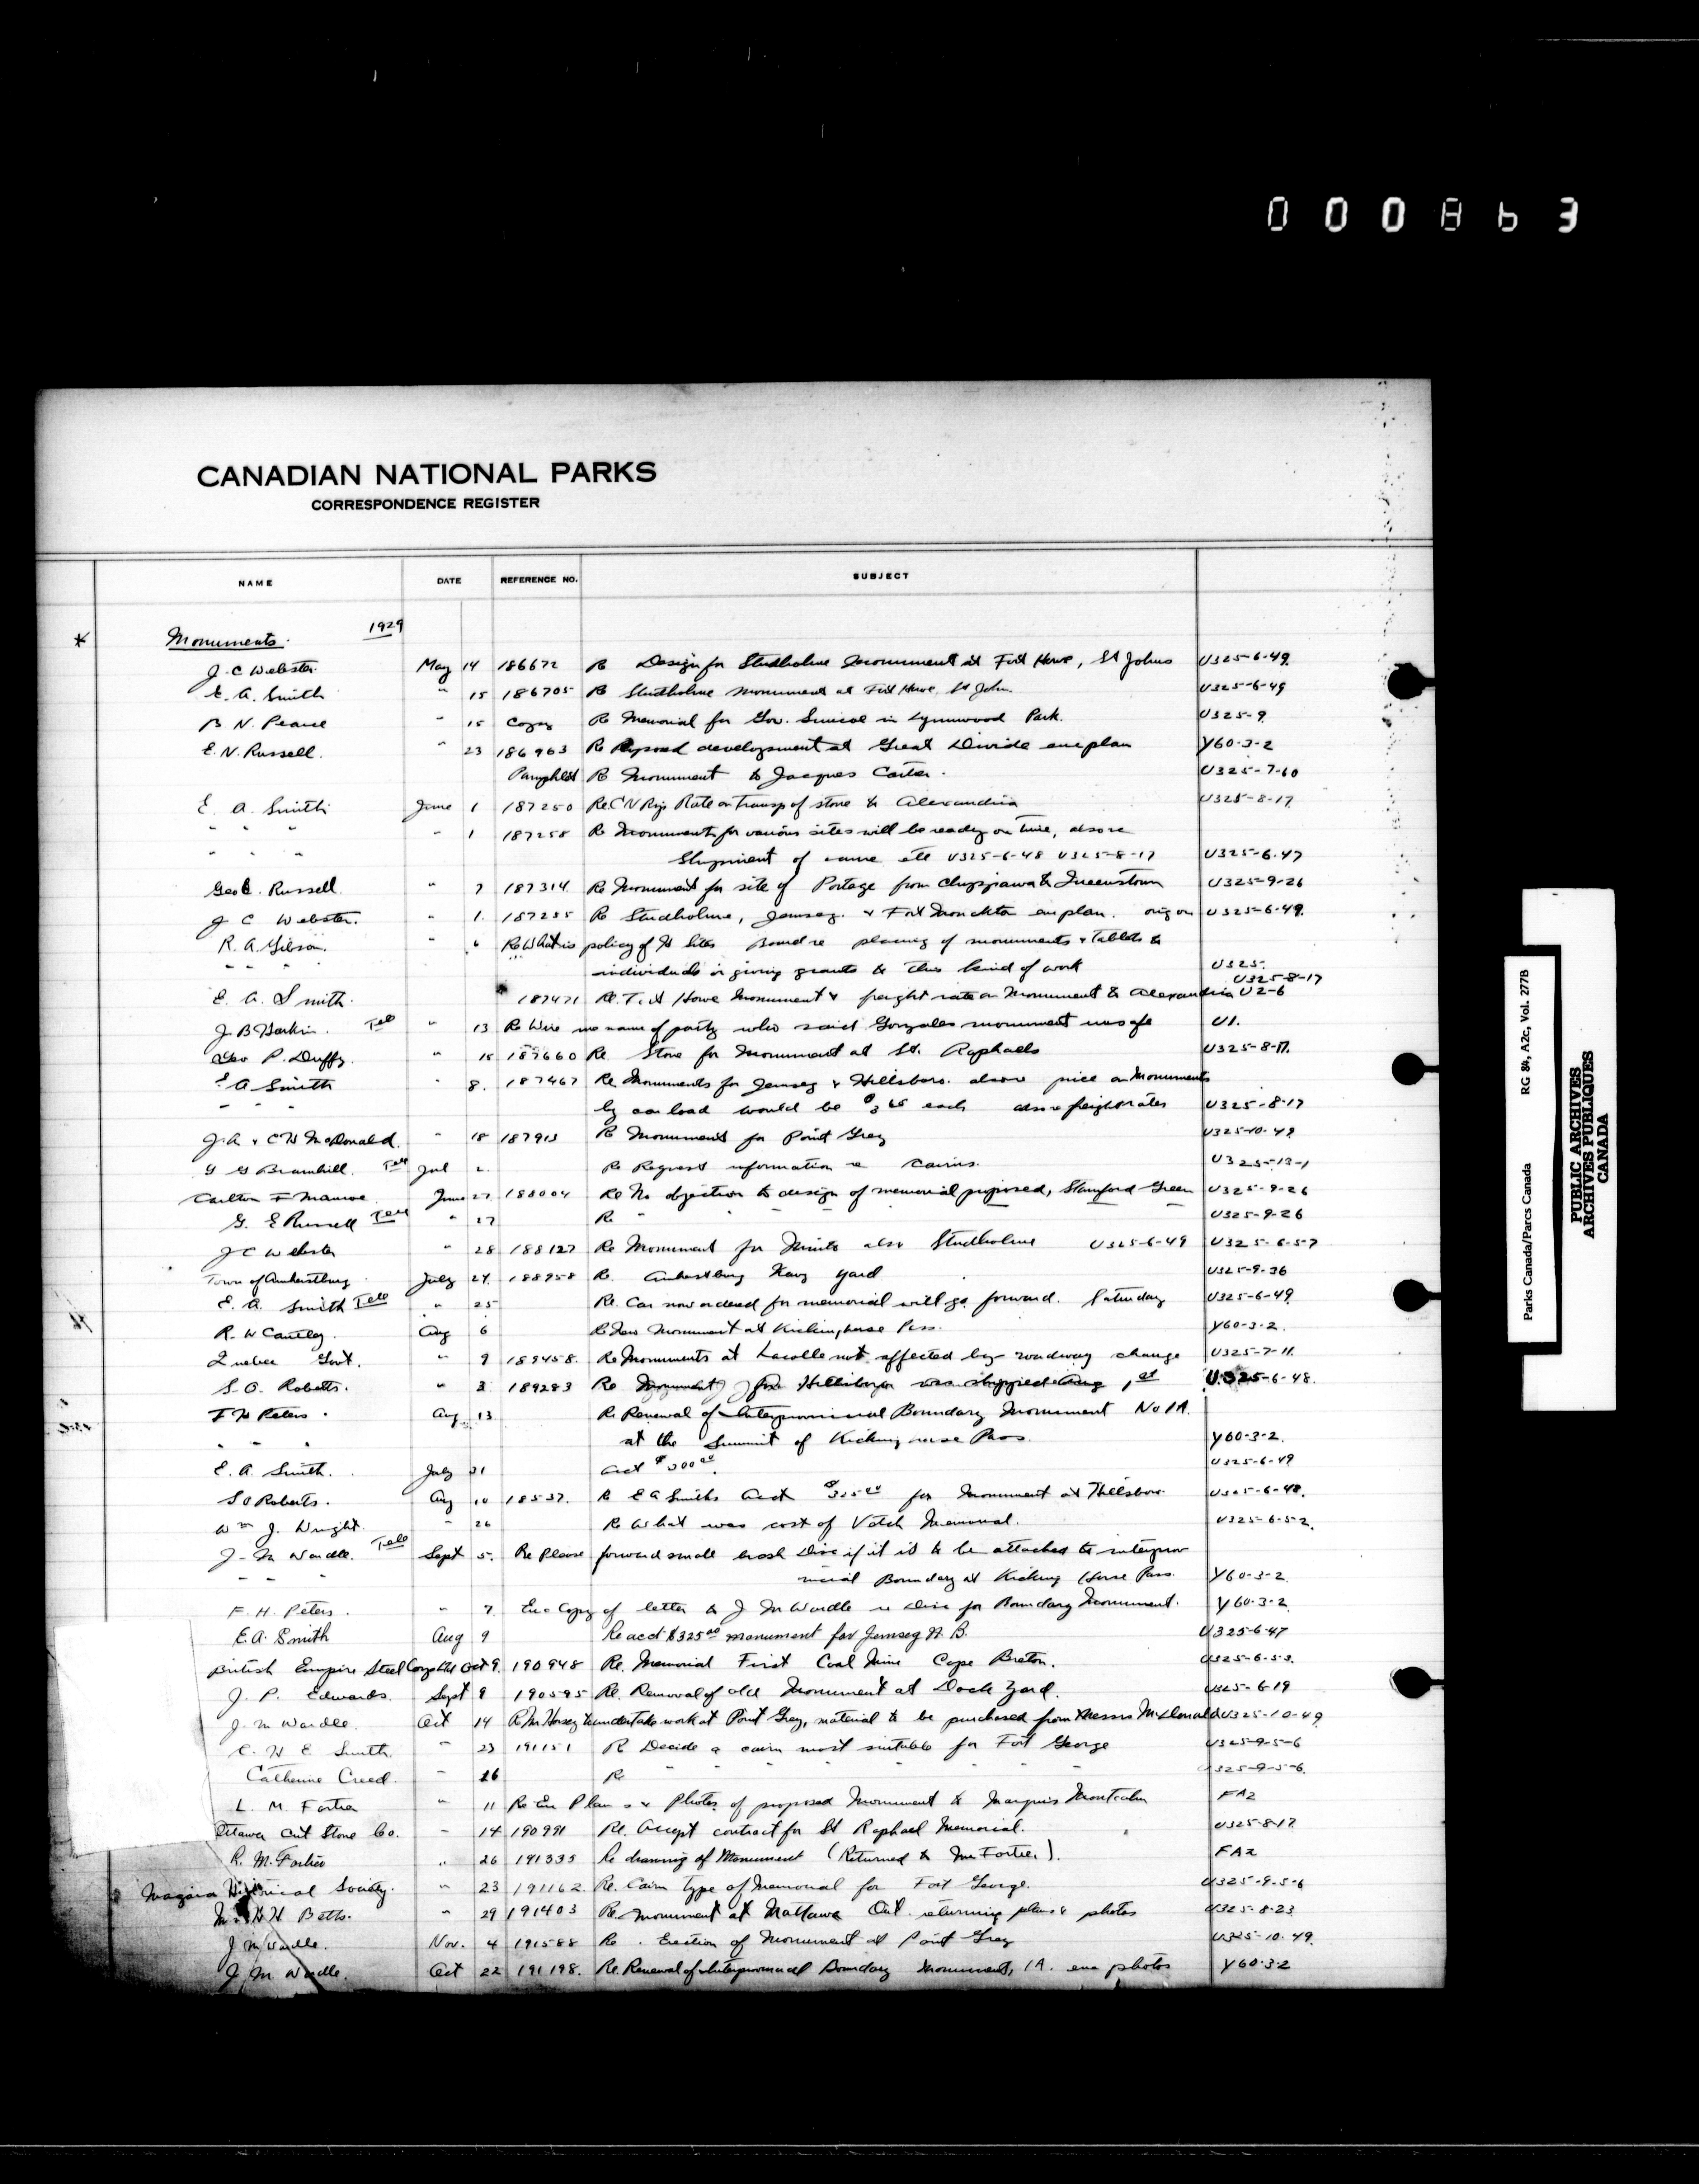 000863
CANADIAN NATIONAL PARKS
CORRESPONDENCE REGISTER
NAME DATE REFERENCE NO. SUBJECT
Monuments. 1929
J. C Webster. May 14 186672 Re Design for Studholme monument at Fort Howe, St Johns U325-6-49.
E. A. Smith " 15 186705 Re Studholme monument at Fort Howe, St John. U325-6-49
B N. Pearce " 15 Copy Re Memorial for Gov. Simcoe in Lynnwood Park. U325-9
E. N. Russell. " 23 186963 Re Proposed development at Great Divide enc plan Y60-3-2
Pamphlet Re Monument to Jacques Cartier. U325-7-10
E. A. Smith June 1 187250 Re. CN Rys Rate on transp of stone to Alexandria U325-8-17
" " " " 1 187258 Re Monuments for various sites will be ready on time, also re
" " " Shipment of same etc U325-6-48 U325-8-17 U325-6-47
Geo E. Russell. " 7 187314 Re Monument for site of Portage from Chippawa to Queenstown U325-9-26
J C Webster. " 1. 187235 Re Studholme, Jemseg. & Fort Monckton enc plan. U325-6-49.
R. A. Gibson. " 6 Re What is policy of H Sites Board re placing of monuments & tablets to
" " " individuals or giving grants to this kind of work U325.
U325-8-17
E. A. Smith. 187471 Re. Fort Howe Monument & freight rate on Monument to Alexandria U2-6
J. B Harkin. Tel " 13 Re Wire me name of party who said Gonzales monument unsafe U1.
Geo P. Duffy. " 15 187660 Re. Stone for Monument at St. Raphaels U325-8-17.
E A Smith " 8. 187467 Re Monuments for Jemseg & Hillsboro. also re price on Monuments
" " by car load would be each also re freight rates U325-8-17
J. A & C H McDonald. " 18 187913 Re Monument for Point Grey U325-10-49
G G Bramhill. Tel Jul 2. Re Request information re cairns. U325-13-1
Carlton F Munroe June 27 188004 Re No objection to design of memorial proposed, Stamford Green U325-9-26
G. E Russell Tel " 27 Re " " " " U325-9-26
J C Webster " 28 188127 Re Monument for Minto also Studholme U325-6-49 U325-6-57
Town of Amherstburg July 24. 188958 Re. Amherstburg Navy Yard U325-9-36
E. A. Smith Tel " 25 Re. Car now ordered for memorial will go forward. Saturday U325-6-49
R. W Cautley. Aug 6 Re New Monument at Kicking horse Pass. Y60-3-2.
Quebec Govt. " 9 189458. Re Monuments at Lacolle not affected by roadway change U325-7-11.
S. O. Roberts. " 3 189283 Re Monument for Hillsboro was shipped Aug 1st U325-6-48.
F H Peters. Aug. 13 Re Renewal of Interprovincial Boundary Monument No 1A.
" " " at the Summit of Kicking horse Pass. Y60-3-2.
E. A. Smith. July 31 Acct $300.00. U325-6-49
S O Roberts. Aug 10 18537. Re E A Smiths Acct $325.00 for Monument at Hillsboro. U325-6-48.
Wm J. Wright. " 26 Re What was cost of Vetch Memorial. U325-6-52.
J. M Wardle. Tel Sept 5. Re Please forward small brass Disc if it is to be attached to interprov
" " " incial Boundary at Kicking Horse Pass. Y60-3-2
F. H. Peters. " 7. Enc Copy of letter to J M Wardle re Disc for Boundary Monument. Y60-3-2
E. A. Smith Aug 9 Re acct $325.00 monument for Jemseg N. B. U325-6-47
British Empire Steel Corp Ltd Oct 9. 190948 Re. Memorial First Coal Mine Cape Breton. U325-6-53.
J. P. Edwards. Sept 9 190595 Re. Removal of old Monument at Dock Yard. U325-6-19
J. M Wardle. Oct 14 Re Mr Horsey to undertake work at Point Grey, material to be purchased from Messrs McDonald U325-10-49
C. H E Smith. " 23 191151 Re Decide a cairn most suitable for Fort George U325-9-5-6
Catherine Creed. " 26 Re " " " " " 325-9-5-6.
L. M. Fortier " 11 Re Enc Plans & Photos of proposed Monument to Marquis Montcalm FA2
Ottawa Cut Stone Co. " 14 190991 Re. Accept contract for St Raphael Memorial. U325-8-17
R. M. Fortier " 26 191335 Re drawing of Monument (Returned to Mr Fortier). FA2
Niagara Historical Society. " 23 191162. Re. Cairn type of Memorial for Fort George. U325-9-5-6
H H Betts. " 29 191403 Re. Monument at Mattawa Ont. returning plans & photos U325-8-23
J M Wardle. Nov. 4 191588 Re. Erection of Monument at Point Grey U325-10-49.
J. M Wardle. Oct 22 191198. Re. Renewal of Interprovincial Boundary Monument, 1A. enc photos Y60-3-2
Parks Canada/Parcs Canada RG 84, A2c, Vol. 2778
PUBLIC ARCHIVES
ARCHIVES PUBLIQUES
CANADA